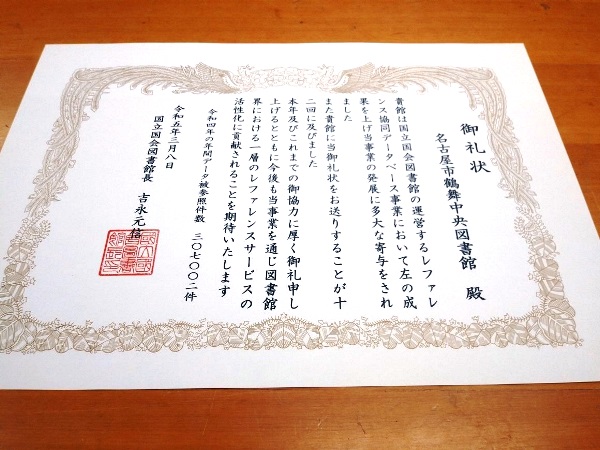 御礼状
名古屋市鶴舞中央図書館 殿
貴館は国立国会図書館の運営するレファレ
ンス協同データベース事業において左の成
果を上げ当事業の発展に多大な寄与をされ
ました
また貴館に当御礼状をお送りすることが十
二回に及びました
本年及びこれまでの御協力に厚く御礼申し
上げるとともに今後も当事業を通じ図書館
界における一層のレファレンスサービスの
活性化に貢献されることを期待いたします
令和四年の年間データ被参照件数 三〇七〇〇二件
令和五年三月八日
国立国会図書館長 吉永元信